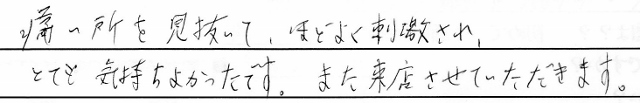 痛い所を見抜いて、ほどよく刺激され、
とても気持ちよかったです。また来店させていただきます。